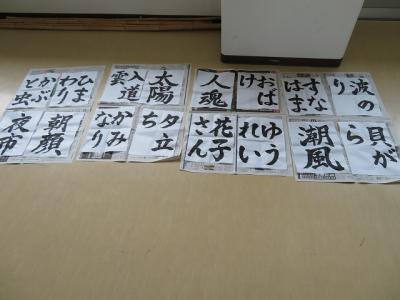 波のり
すなはま
貝がら
潮風
おばけ
人魂
ゆうれい
花子さん
太陽
入道雲
夕立ち
かみなり
ひまわり
かぶと虫
朝顔
夜市